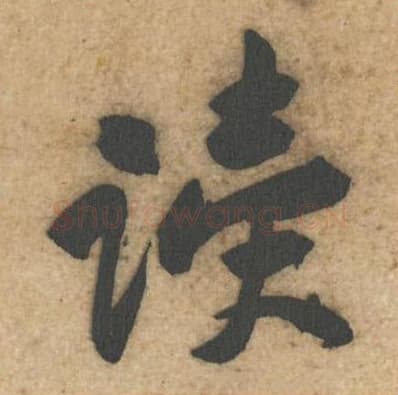 读
Shufawang.CN